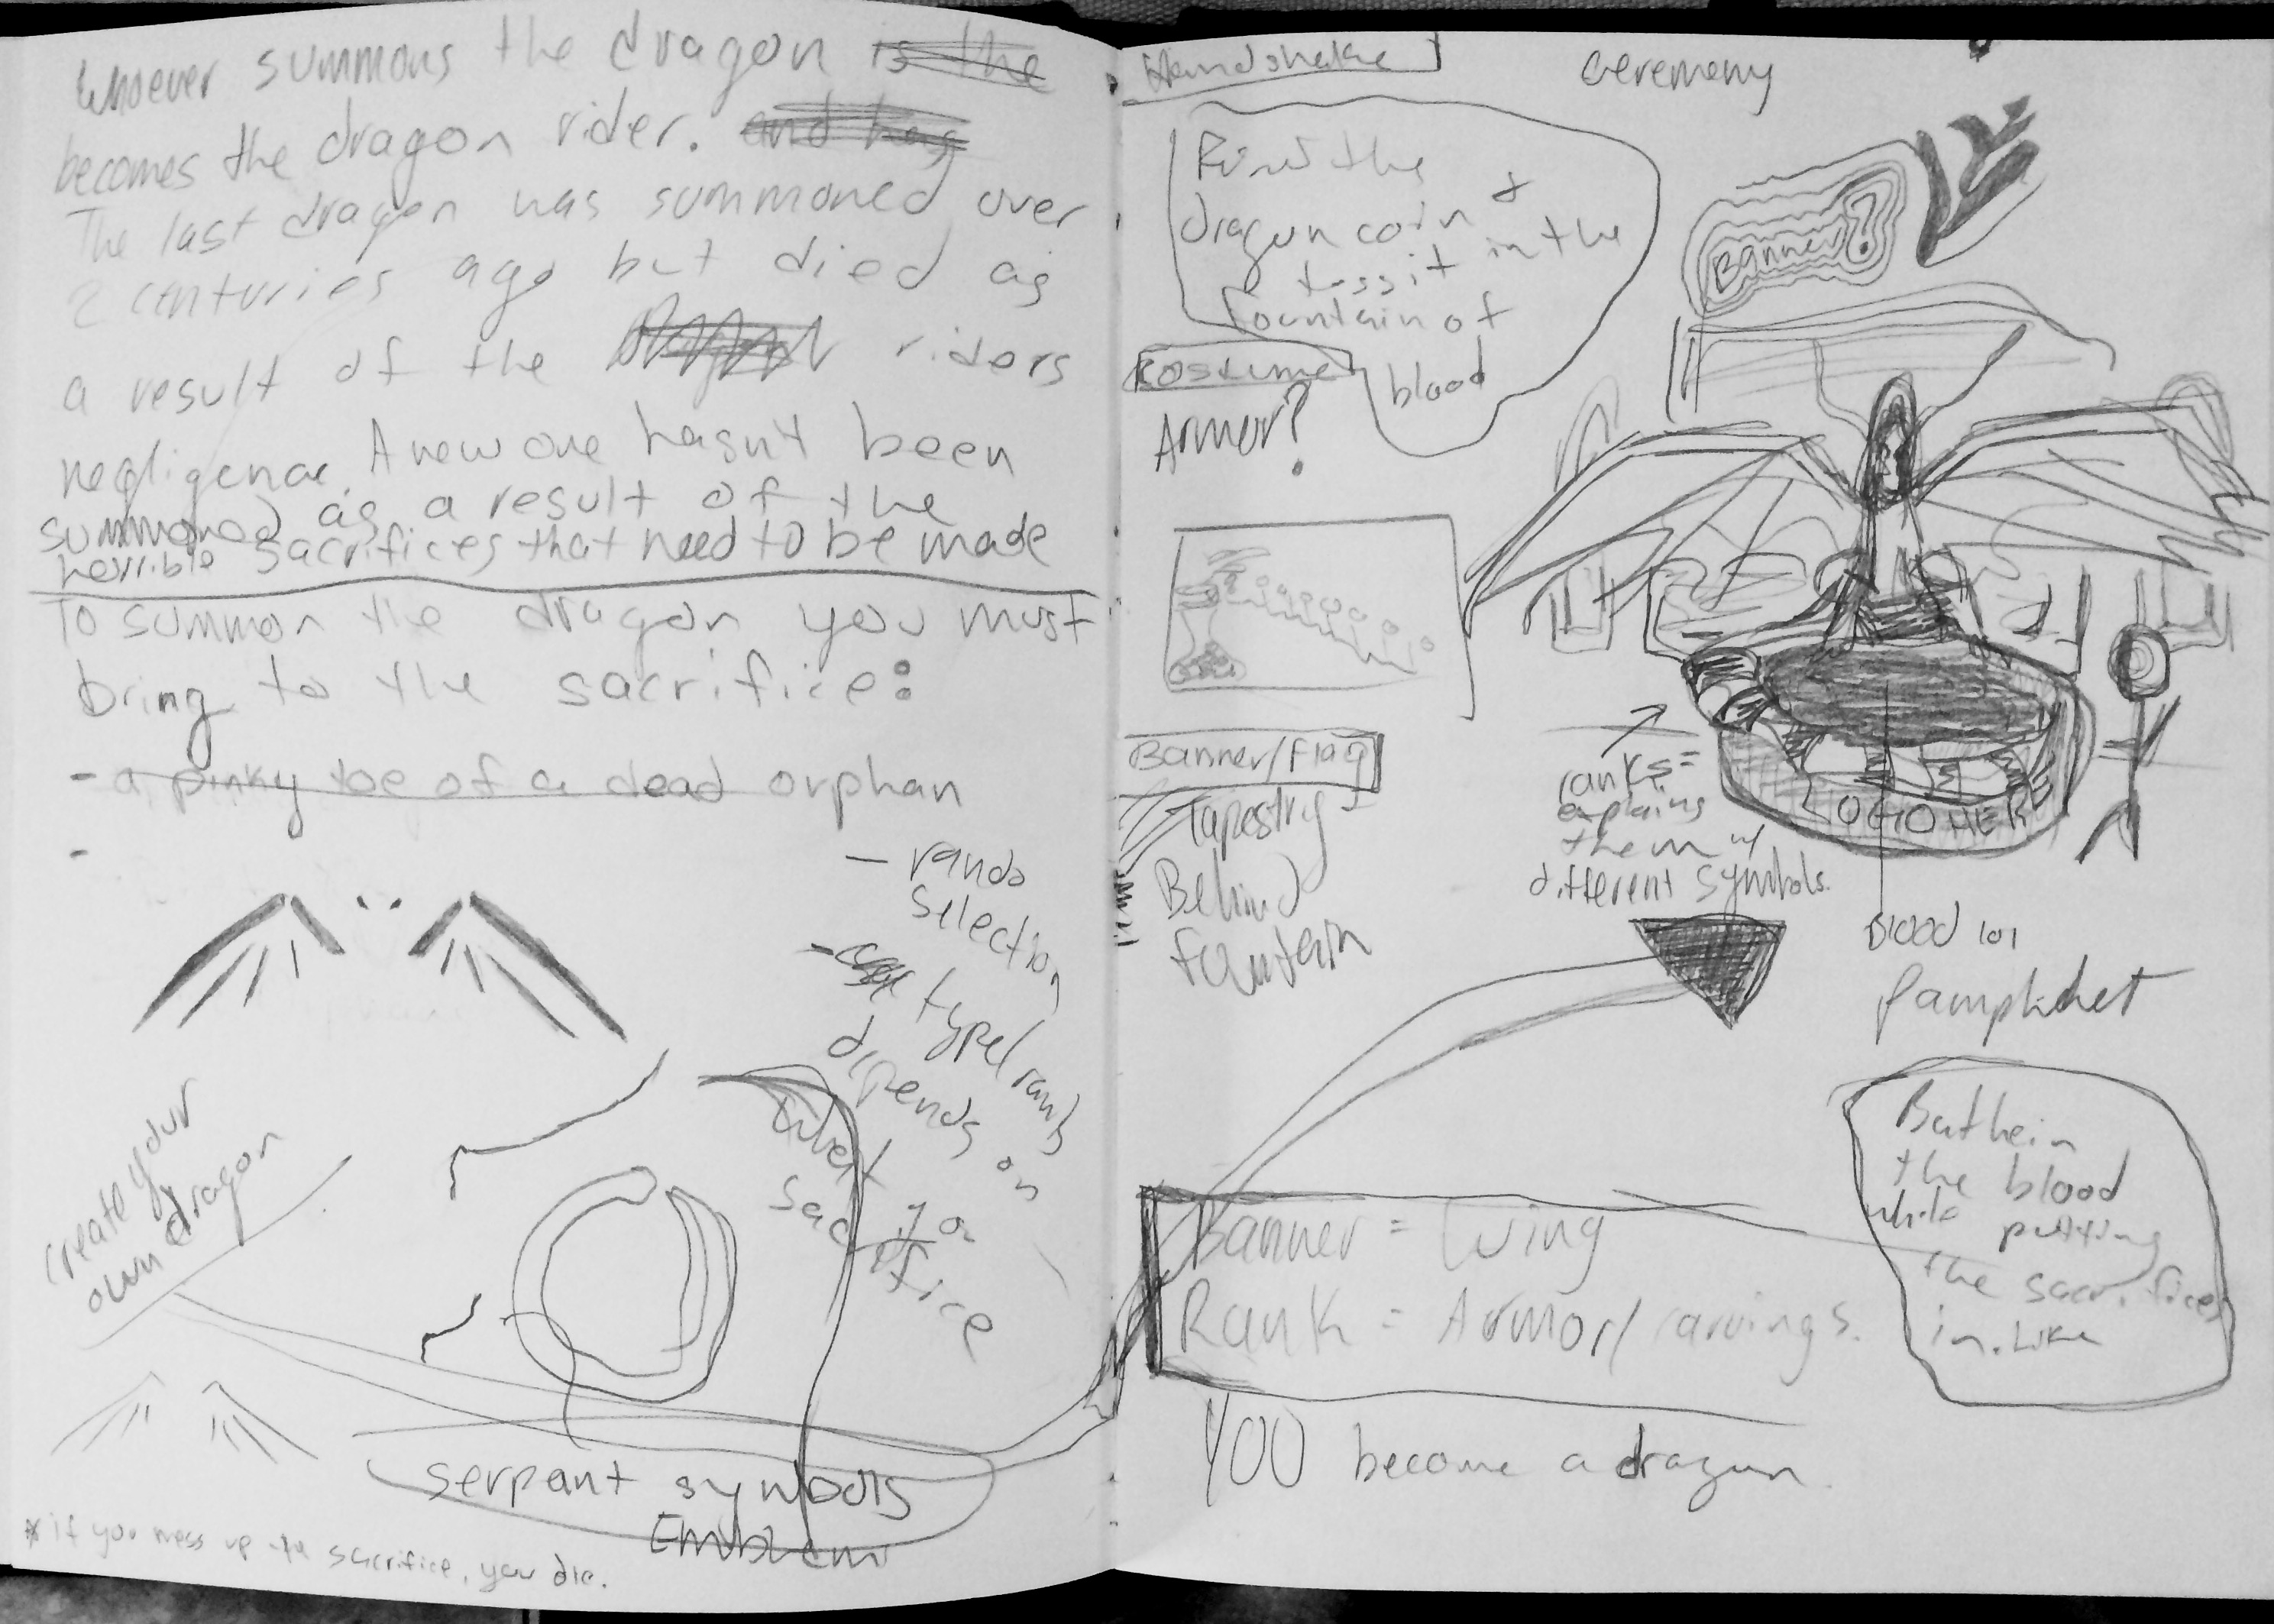 Whoever summons the dragon is the
becomes the dragon rider. and has
The last dragon was summoned over
2 centuries ago but died as
a result of the riders
negligence. A new one hasn't been
summoned as a result of the
horrible sacrifices that need to be made
To summon the dragon you must
bring to the sacrifice:
- a pinky toe of a dead orphan
-
- rando
selection
- type/rank
depends on
what yo
sacrifice
create your
own dragon
serpant symbols
Emblem
* if you mess up the sacrifice, you die.
Handshake
Ceremony
Find the
dragon coin &
toss it in the
fountain of
blood
Banner?
Costume
Armor?
Banner/Flag
Tapestry
Behind
fountain
ranks=
explains
them w/
different symbols.
LOGO HER
Blood 101
Pamphlet
Bathe in
the blood
while putting
the sacrifices
in. Like
Banner = Wing
Rank = Armor/carvings.
YOU become a dragon.